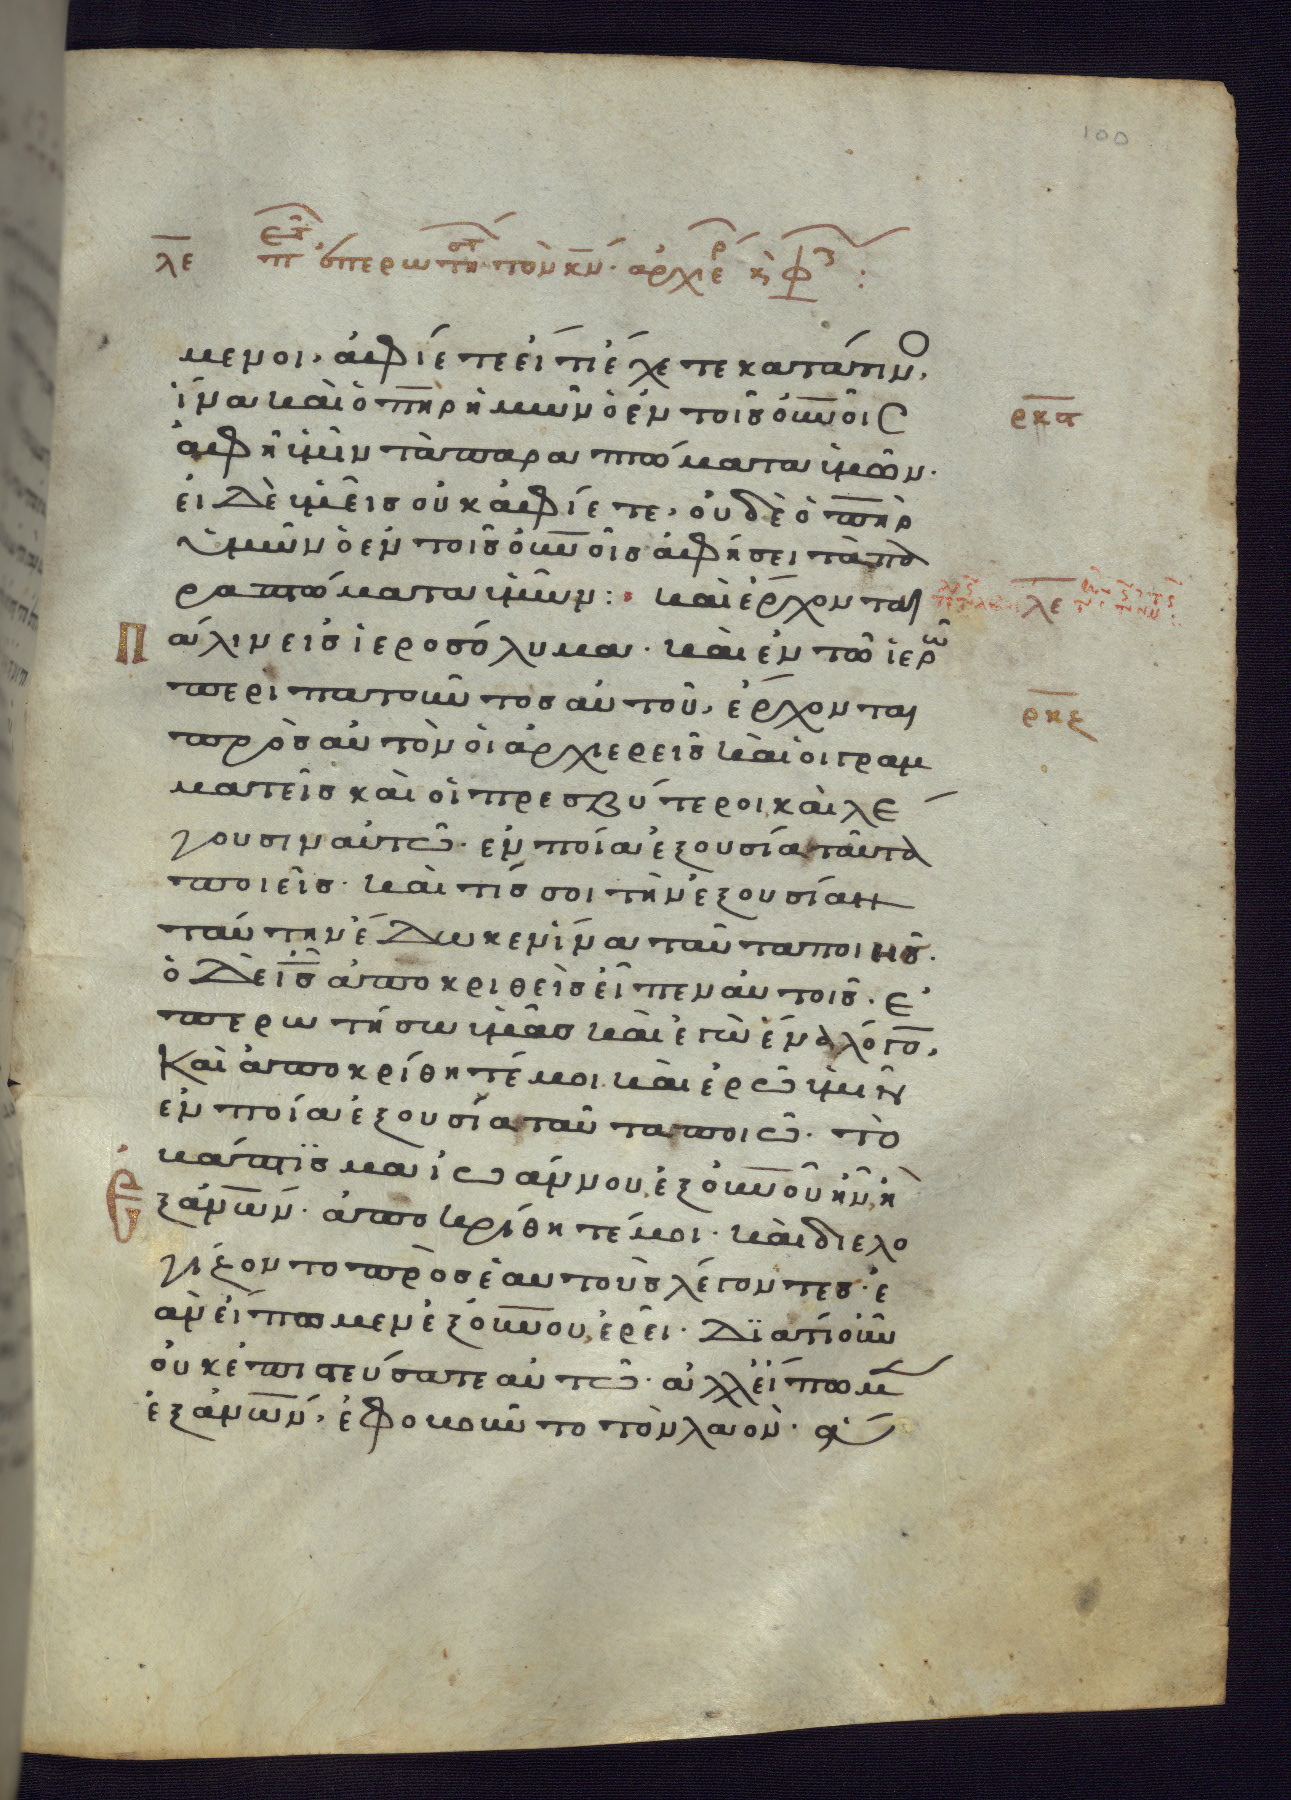 100
λε
μενοι· ἀφίετε εἴ τι ἔχετε κατά τιν͂ο,
ἵνα καὶ ὁ π̅η̅ρ ἡμῶν ὁ ἐν τοῖς ο̅υ̅ν̅οῖς
ρκα
ἀφῆ ὑμῖν τὰ παραπτώματα ὑμῶν·
εἰ δὲ ὑμεῖς οὐκ ἀφίετε· οὐδὲ ὁ π̅η̅ρ
ὑμῶν ὁ ἐν τοῖς ο̅υ̅ν̅οῖς ἀφήσει τὰ πα
ραπτώματα ὑμῶν: καὶ ἔρχονται
λε
πάλιν εἰς ἱεροσόλυμα· καὶ ἐν τῶ ἱερῶ
περιπατοῦντος αὐτοῦ, ἔρχονται
ρκζ
πρὸς αὐτὸν οἱ ἀρχιερεῖς καὶ οἱ γραμ
ματεῖς καὶ οἱ πρεσβύτεροι καὶ λέ
γουσιν αὐτῶ· ἐν ποία ἐξουσία ταῦτα
ποιεῖς· καὶ τίς σοι τὴν ἐξουσίαν
ταύτην ἔδωκεν ἵνα ταῦτα ποιῆς·
ὁ δὲ ι̅ς̅ ἀποκριθεὶς εἶπεν αὐτοῖς· ἐ
περωτήσω ὑμᾶς καὶ ἐγὼ ἕνα λόγον,
Καὶ ἀποκρίθητέ μοι καὶ ἐρῶ ὑμῖν
ἐν ποία ἐξουσία ταῦτα ποιῶ· τὸ
βάπτισμα ἰωάννου ἐξ ο̅υ̅ν̅οῦ ἦν, ἢ
ἐξ α̅ν̅ων· ἀποκρίθητέ μοι· καὶ διελο
γίζοντο πρὸς ἑαυτοὺς λέγοντες· ἐ
ὰν εἴπωμεν ἐξ ο̅υ̅ν̅ου, ἐρεῖ· διατί οὖν
οὐκ ἐπιστεύσατε αὐτῶ· ἀλλ εἴπωμ
ἐξ α̅ν̅ων, ἐφοβοῦντο τὸν λαόν· ἅ